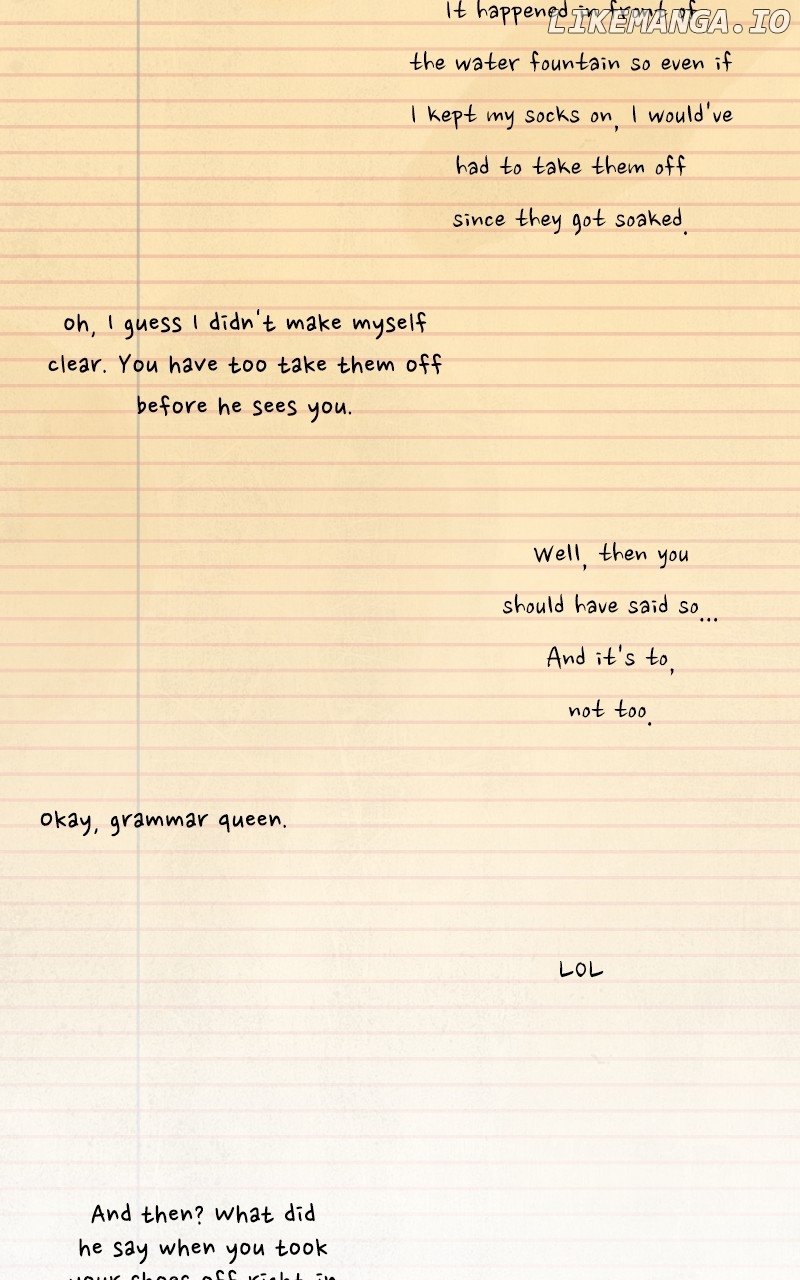 It happened in front of
LIKEMANGA.IO
the water fountain so even if
I kept my socks on, I would've
had to take them off
since they got soaked.
Oh, I guess I didn't make myself
clear. You have too take them off
before he sees you.
Well, then you
should have said so...
And it's to,
not too.
Okay, grammar queen.
LOL
And then? What did
he say when you took
your shoes off right in